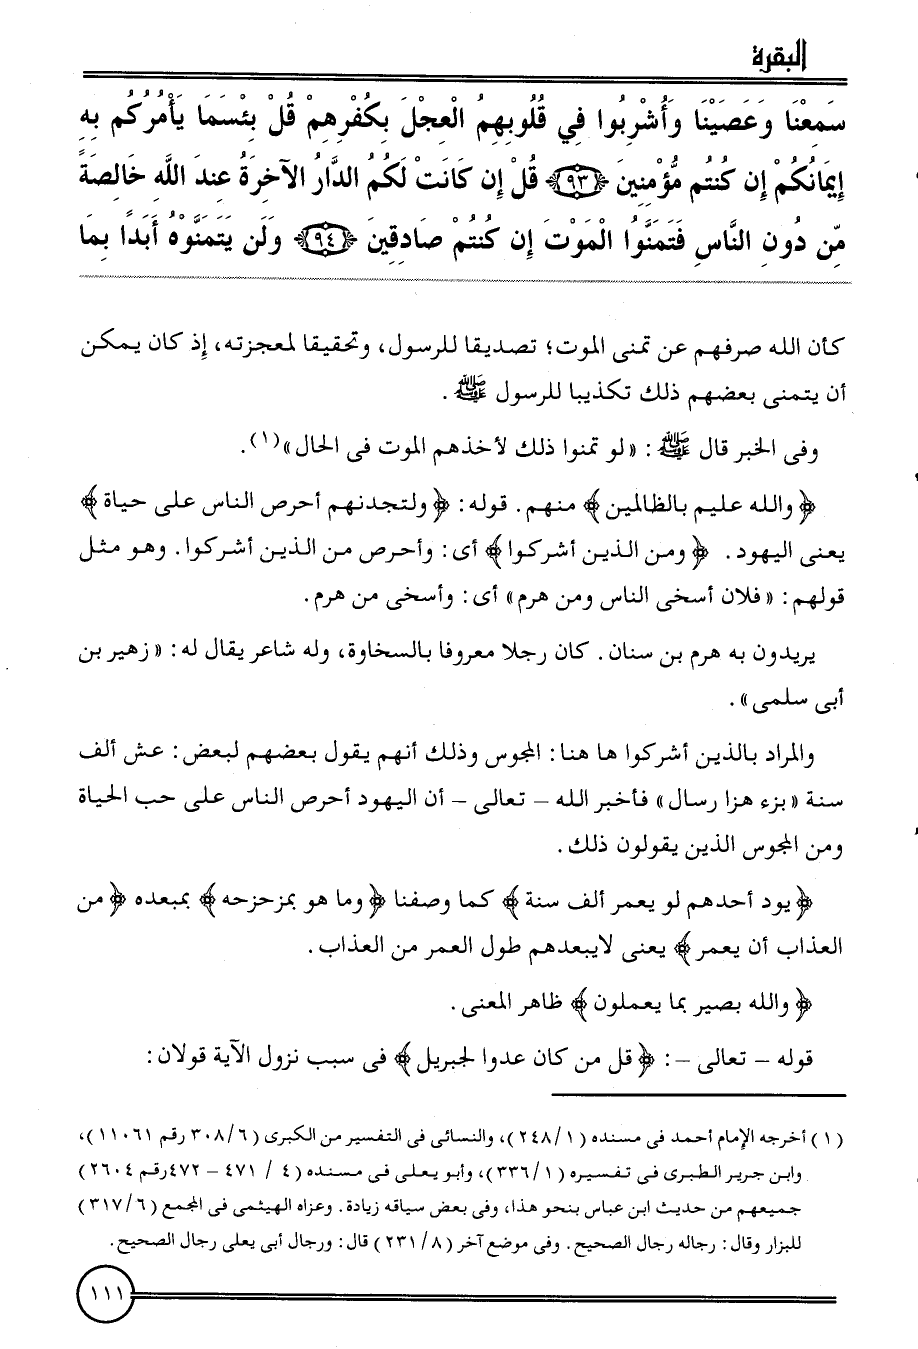 البقرة
سَمِعْنَا وَعَصَيْنَا وَأُشْرِبُوا فِي قُلُوبِهِمُ الْعِجْلَ بِكُفْرِهِمْ قُلْ بِئْسَمَا يَأْمُرُكُم بِهِ
إِيمَانُكُمْ إِن كُنتُم مُّؤْمِنِينَ ﴿٩٣﴾ قُلْ إِن كَانَتْ لَكُمُ الدَّارُ الْآخِرَةُ عِندَ اللَّهِ خَالِصَةً
مِّن دُونِ النَّاسِ فَتَمَنَّوُا الْمَوْتَ إِن كُنتُمْ صَادِقِينَ ﴿٩٤﴾ وَلَن يَتَمَنَّوْهُ أَبَدًا بِمَا
كأن الله صرفهم عن تمنى الموت؛ تصديقا للرسول، وتحقيقا لمعجزته، إذ كان يمكن
أن يتمنى بعضهم ذلك تكذيبا للرسول ﷺ .
وفى الخبر قال ﷺ : «لو تمنوا ذلك لأخذهم الموت فى الحال»(١).
﴿والله عليم بالظالمين﴾ منهم. قوله: ﴿ولتجدنهم أحرص الناس على حياة﴾
يعنى اليهود. ﴿ومن الذين أشركوا﴾ أى: وأحرص من الذين أشركوا. وهو مثل
قولهم: «فلان أسخى الناس ومن هرم» أى: وأسخى من هرم.
يريدون به هرم بن سنان. كان رجلا معروفا بالسخاوة، وله شاعر يقال له: «زهير بن
أبى سلمى».
والمراد بالذين أشركوا ها هنا: المجوس وذلك أنهم يقول بعضهم لبعض: عش ألف
سنة «بزء هزا رسال» فأخبر الله – تعالى – أن اليهود أحرص الناس على حب الحياة
ومن المجوس الذين يقولون ذلك.
﴿يود أحدهم لو يعمر ألف سنة﴾ كما وصفنا ﴿وما هو بمزحزحه﴾ بمبعده ﴿من
العذاب أن يعمر﴾ يعنى لايبعدهم طول العمر من العذاب.
﴿والله بصير بما يعملون﴾ ظاهر المعنى.
قوله – تعالى –: ﴿قل من كان عدوا لجبريل﴾ فى سبب نزول الآية قولان:
(١) أخرجه الإمام أحمد فى مسنده (٢٤٨/١)، والنسائى فى التفسير من الكبرى (٣٠٨/٦ رقم ١١٠٦١)،
وابن جرير الطبرى فى تفسيره (٣٣٦/١)، وأبو يعلى فى مسنده (٤ / ٤٧١ – ٤٧٢رقم ٢٦٠٤)
جميعهم من حديث ابن عباس بنحو هذا، وفى بعض سياقه زيادة. وعزاه الهيثمى فى المجمع (٣١٧/٦)
للبزار وقال: رجاله رجال الصحيح. وفى موضع آخر (٢٣١/٨) قال: ورجال أبى يعلى رجال الصحيح.
١١١